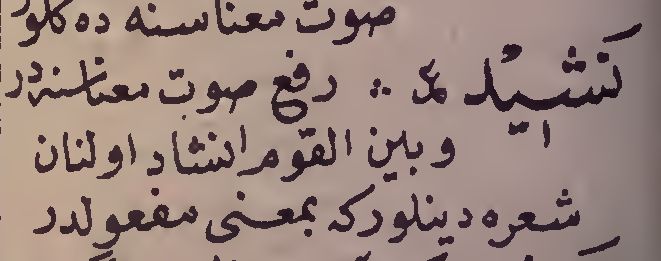 صوت معناسنه ده كلور
نشيد ع م ∴ رفع صوت معناسنه در
وبين القوم انشاد اولنان
شعره دينلور كه بمعنى مفعولدر